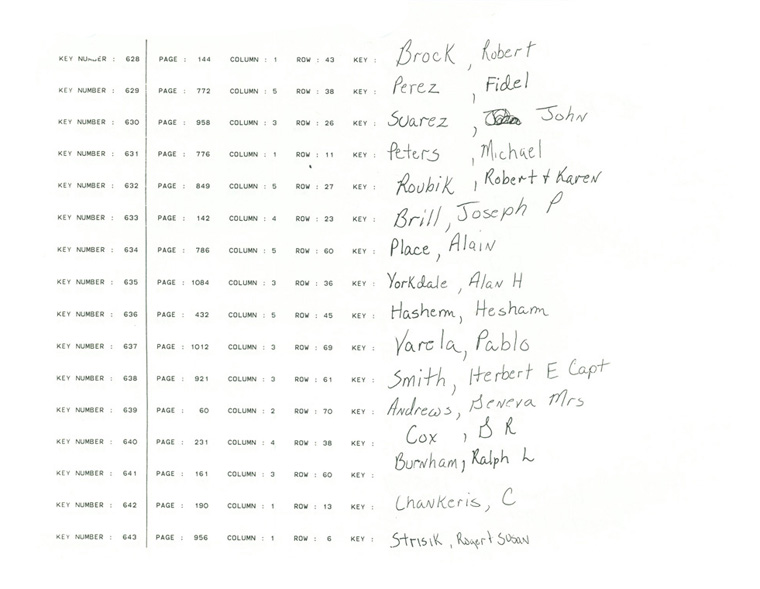 KEY NUMBER : 628 PAGE : 144 COLUMN : 1 ROW : 43 KEY : Brock, Robert
KEY NUMBER : 629 PAGE : 772 COLUMN : 5 ROW : 38 KEY : Perez, Fidel
KEY NUMBER : 630 PAGE : 958 COLUMN : 3 ROW : 26 KEY : Suarez, John
KEY NUMBER : 631 PAGE : 776 COLUMN : 1 ROW : 11 KEY : Peters, Michael
KEY NUMBER : 632 PAGE : 849 COLUMN : 5 ROW : 27 KEY : Roubik, Robert + Karen
KEY NUMBER : 633 PAGE : 142 COLUMN : 4 ROW : 23 KEY : Brill, Joseph P
KEY NUMBER : 634 PAGE : 786 COLUMN : 5 ROW : 60 KEY : Place, Alain
KEY NUMBER : 635 PAGE : 1084 COLUMN : 3 ROW : 36 KEY : Yorkdale, Alan H
KEY NUMBER : 636 PAGE : 432 COLUMN : 5 ROW : 45 KEY : Hashem, Hesham
KEY NUMBER : 637 PAGE : 1012 COLUMN : 3 ROW : 69 KEY : Varela, Pablo
KEY NUMBER : 638 PAGE : 921 COLUMN : 3 ROW : 61 KEY : Smith, Herbert E Capt
KEY NUMBER : 639 PAGE : 60 COLUMN : 2 ROW : 70 KEY : Andrews, Geneva Mrs
KEY NUMBER : 640 PAGE : 231 COLUMN : 4 ROW : 38 KEY : Cox, G R
KEY NUMBER : 641 PAGE : 161 COLUMN : 3 ROW : 60 KEY : Burnham, Ralph L
KEY NUMBER : 642 PAGE : 190 COLUMN : 1 ROW : 13 KEY : Chankeris, C
KEY NUMBER : 643 PAGE : 956 COLUMN : 1 ROW : 6 KEY : Strisik, Susan